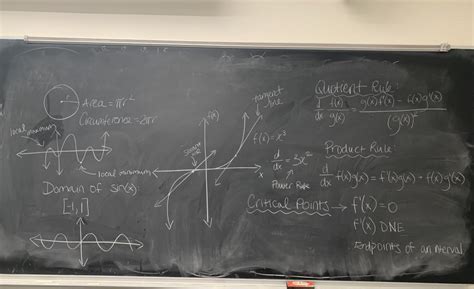 r
Area = πr²
Circumference = 2πr
local maximum
local minimum
Domain of sin(x):
[-1,1]
tangent
line
f(x)
secant
line
x
f(x) = x³
d/dx = 3x²
Power Rule
Quotient Rule:
d/dx f(x)/g(x) = g(x)f'(x) - f(x)g'(x)/(g(x))²
Product Rule:
d/dx f(x)g(x) = f'(x)g(x) + f(x)g'(x)
Critical Points → f'(x) = 0
f'(x) DNE
Endpoints of an interval